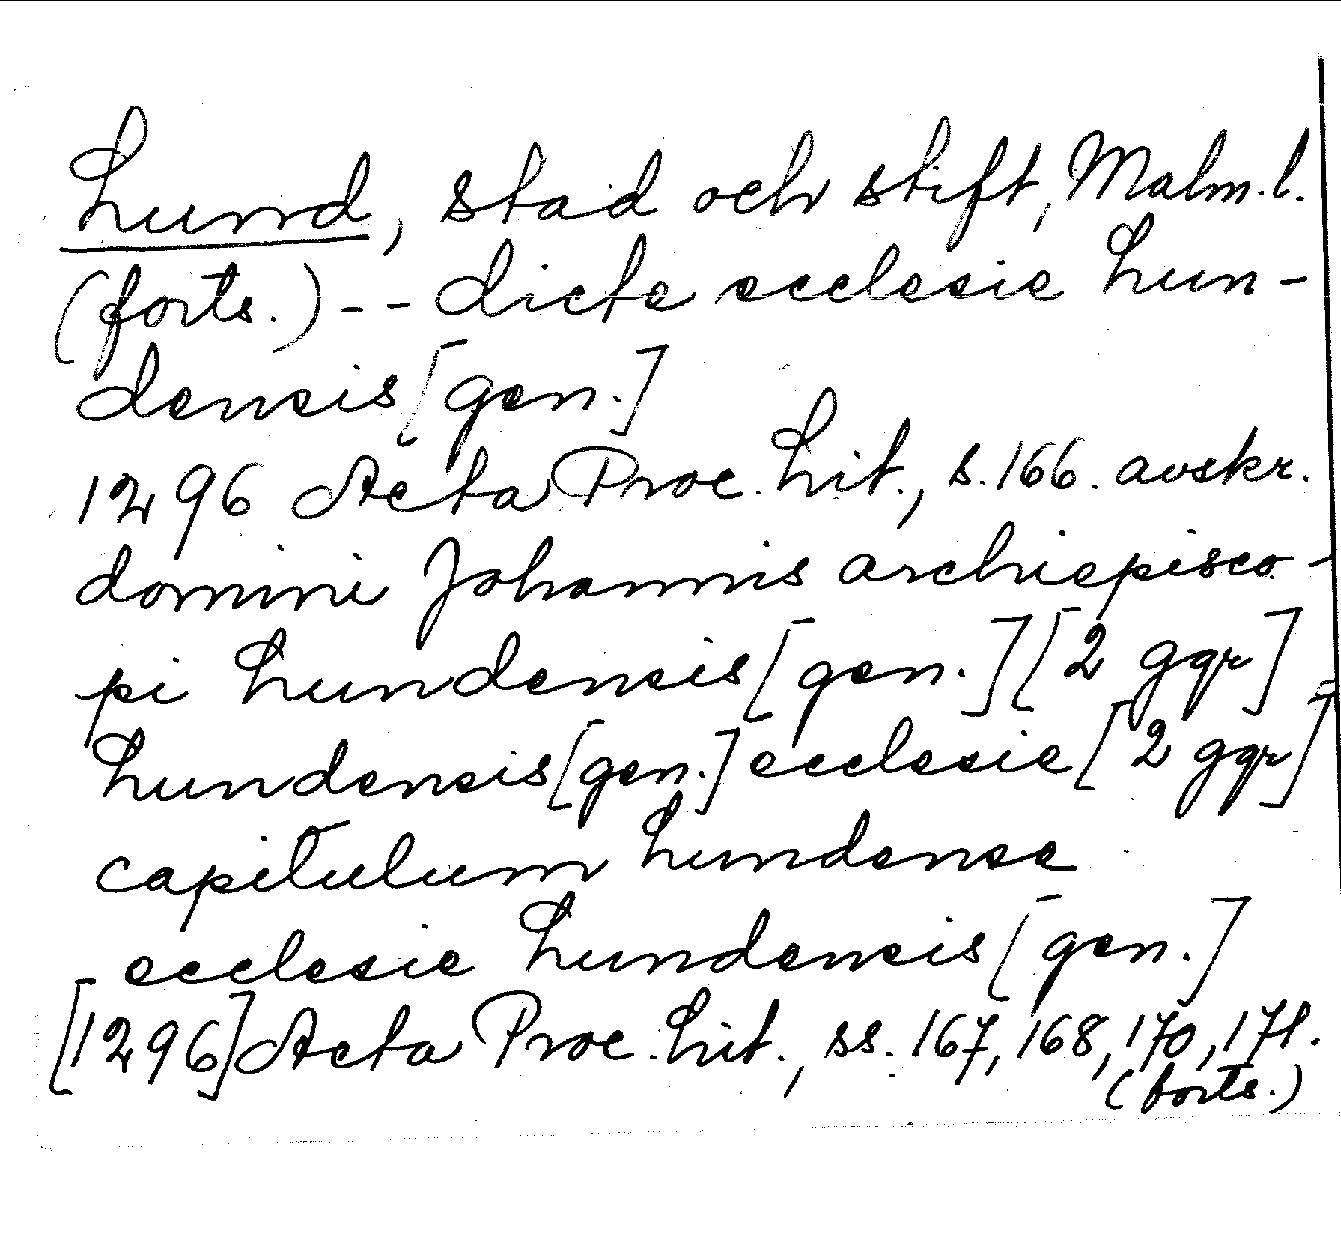 Lund, stad och stift, Malm.l.
(forts.) - - dicte ecclesie Lun-
densis [gen.]
1296 Acta Proc. Lit., s. 166. avskr.
domini Johannis archiepisco-
pi Lundensis [gen.] [2 ggr] -
Lundensis [gen.] ecclesie [2 ggr]
capitulum Lundense
- ecclesie Lundensis [gen.]
[1296] Acta Proc. Lit., ss. 167, 168, 170, 171.
(forts.)